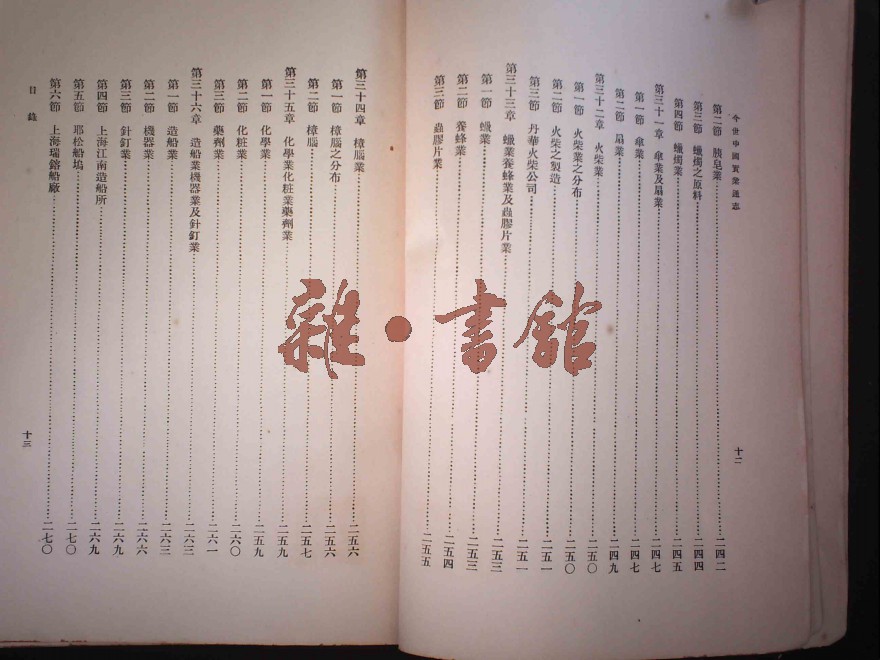 今世中國實業通志
第二節 胰皂業……二四二
第三節 蠟燭之原料……二四四
第四節 蠟燭業……二四五
第三十一章 傘業及扇業……二四七
第一節 傘業……二四七
第二節 扇業……二四九
第三十二章 火柴業……二五〇
第一節 火柴業之分布……二五〇
第二節 火柴之製造……二五一
第三節 丹華火柴公司……二五一
第三十三章 蠟業養蜂業及蟲膠片業……二五三
第一節 蠟業……二五三
第二節 養蜂業……二五四
第三節 蟲膠片業……二五五
十二
第三十四章 樟腦業……二五六
第一節 樟腦之分布……二五六
第二節 樟腦……二五七
第三十五章 化學業化妝業藥劑業……二五九
第一節 化學業……二五九
第二節 化妝業……二六〇
第三節 藥劑業……二六一
第三十六章 造船業機器業及針釘業……二六三
第一節 造船業……二六三
第二節 機器業……二六六
第三節 針釘業……二六九
第四節 上海江南造船所……二六九
第五節 耶松船塢……二七〇
第六節 上海瑞鎔船廠……二七〇
目錄
十三
雜·書館